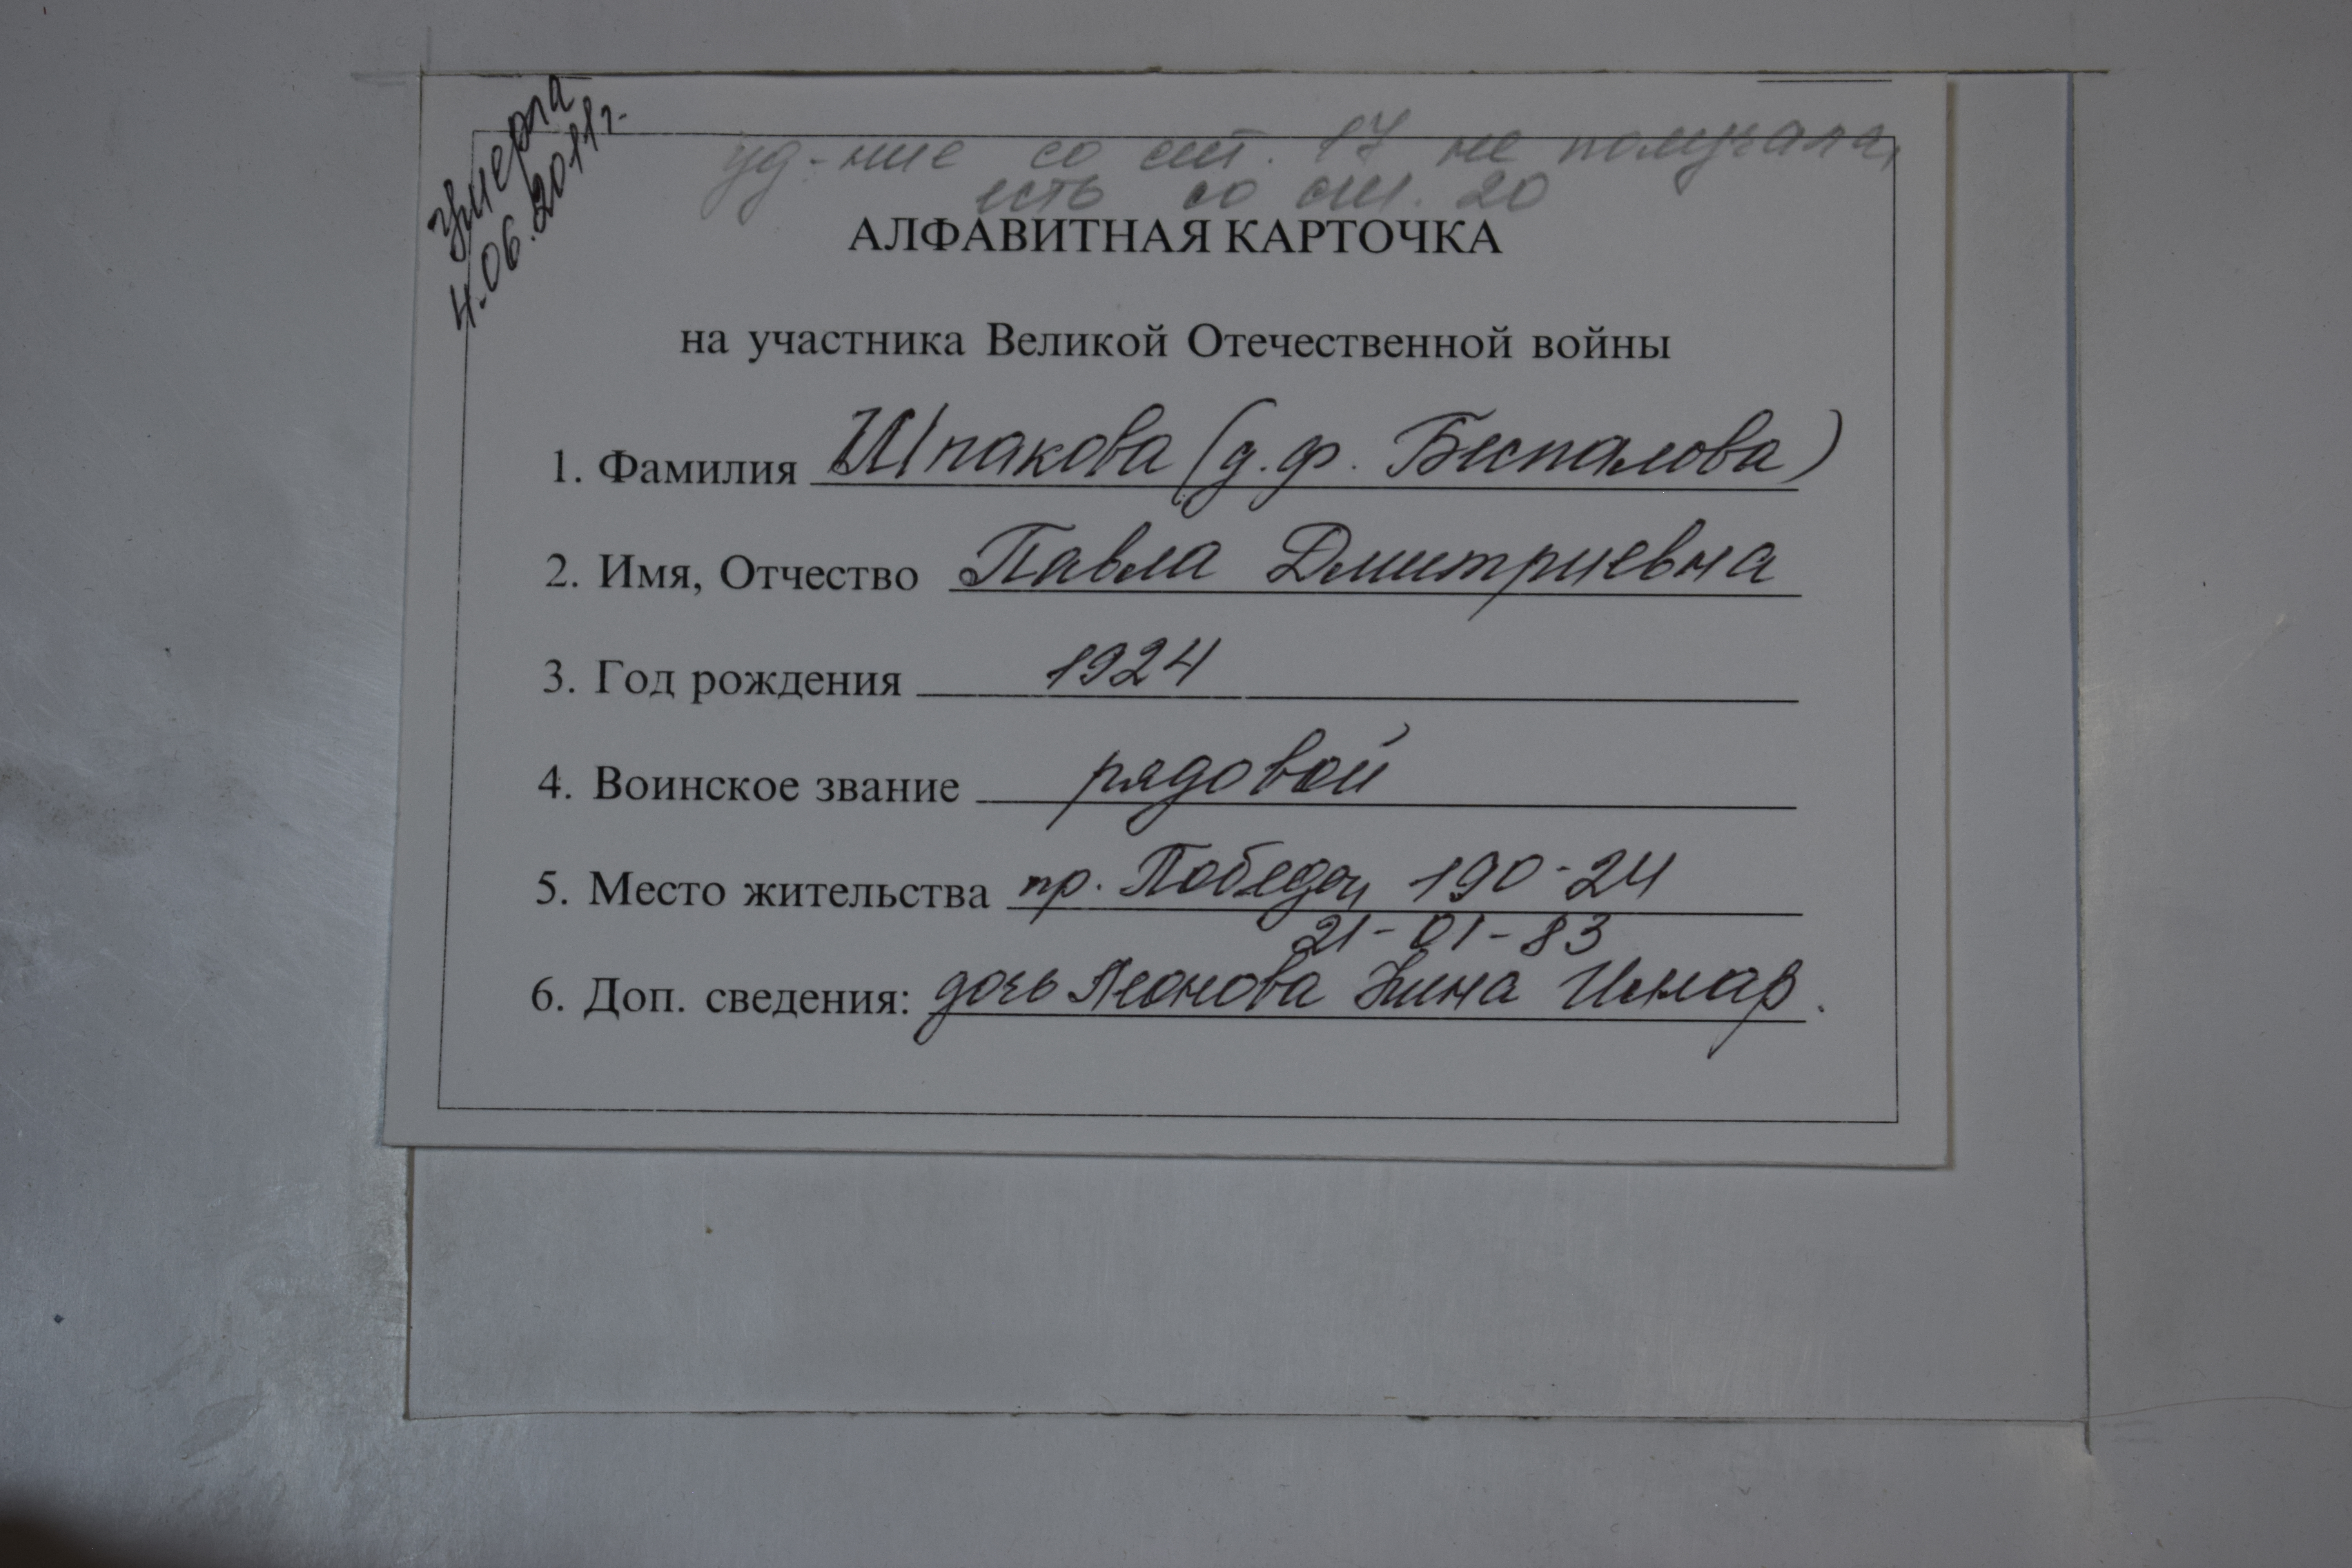 умерла
4.06.2011г.
уд-ние со ст. 17 не получала,
есть со ст. 20
АЛФАВИТНАЯ КАРТОЧКА
на участника Великой Отечественной войны
1. Фамилия Шпакова (д.ф. Беспалова)
2. Имя, Отчество Павла Дмитриевна
3. Год рождения 1924
4. Воинское звание рядовой
5. Место жительства пр. Победы 190-24
21-01-83
6. Доп. сведения: дочь Леонова Нина